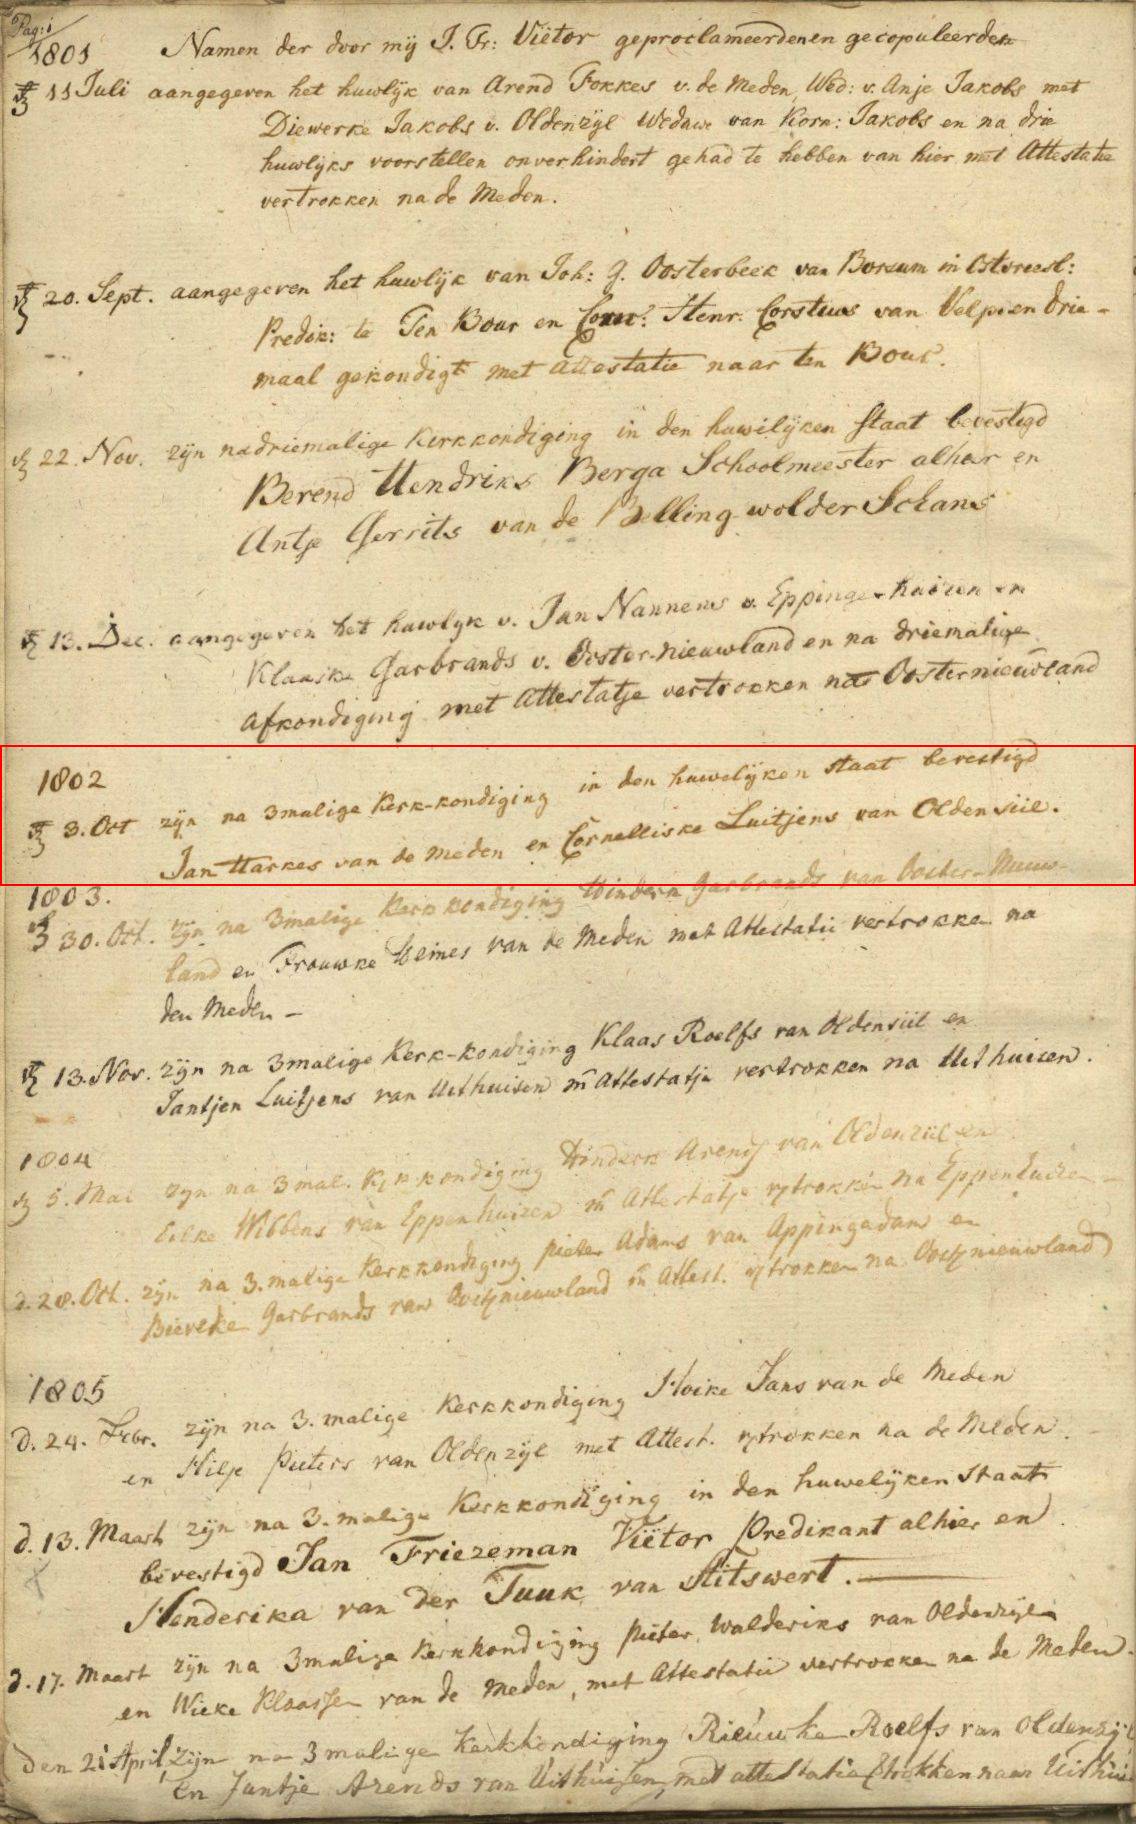 Pag: 1
1801 Namen der door mij J. Fr: Viëtor geproclameerden en gecopuleerden
11 Juli aangegeven het huwlijk van Arend Fokkes v. de Meden, Wed: v. Anje Jakobs met
Diewerke Jakobs v. Oldenzijl Weduwe van Korn: Jakobs en na drie
huwlijks voorstellen onverhindert gehad te hebben van hier met Attestatie
vertrokken na de Meden.
20. Sept. aangegeven het huwlijk van Joh: G. Oosterbeek van Borcum in Ostvreesl:
Predik: te Ten Boer en Henr: Corstius van Velp en drie-
maal gekondigt met attestatie naar ten Boer.
22. Nov. zijn na driemalige Kerkkondiging in den huwilijken staat bevestigd
Berend Hendriks Berga Schoolmeester alhier en
Antje Gerrits van de Bellingwolder Schans
13. Dec. aangegeven het huwlijk v. Jan Nannens v. Eppingehuizen en
Klaaske Garbrands v. Ooster-nieuwland en na driemalige
afkondiging met Attestatje vertrokken na Oosternieuwland
1802
3. Oct zijn na 3malige Kerk-kondiging in den huwelijken staat bevestigd
Jan Harkes van de Meden en Cornelliske Luitjens van Oldensiil.
1803.
30. Oct. zijn na 3malige Kerkkondiging Hindern Garbrands van Ooster-Nieuw-
land en Frouwke Heines van de Meden met Attestatie vertrokken na
den Meden -
13. Nov. zijn na 3malige Kerk-kondiging Klaas Roelfs van Oldensiil en
Jantjen Luitjens van Uithuisen m̄ Attestatje vertrokken na Uithuizen.
1804
5. Mai zyn na 3 mal. Kerkkondiging Hinderk Arends van Oldenziil en
Eilke Wibbens van Eppenhuizen m̄ Attestatje vtrokken na Eppenhuizen
d. 28. Oct. zijn na 3. malige Kerkkondiging Pieter Adams van Appingadam en
Bieveke Garbrands van Oostnieuwland m̄ Attest. vtrokken na Oostnieuwland
1805
d. 24. Febr. zijn na 3. malige Kerkkondiging Hoike Jans van de Meden
en Hilje Pieters van Oldenzijl met Attest. vtrokken na de Meden.
d. 13. Maart zijn na 3. malige Kerkkondiging in den huwelijken Staat
bevestigd Jan Friezeman Viëtor Predikant alhier en
Henderika van der Tuuk van Stitswert.
d. 17. Maart zijn na 3malige Kerkkondiging Pieter Walderiks van Oldenzijl
en Wieke Klaassen van de Meden, met Attestatie vertrokken na de Meden.
den 21 April, Zijn na 3 malige Kerkkondiging Rieuwke Roelfs van Oldenzijl
En Jantje Arends van Uithuisen, met attestatie vtrokken naar Uithui